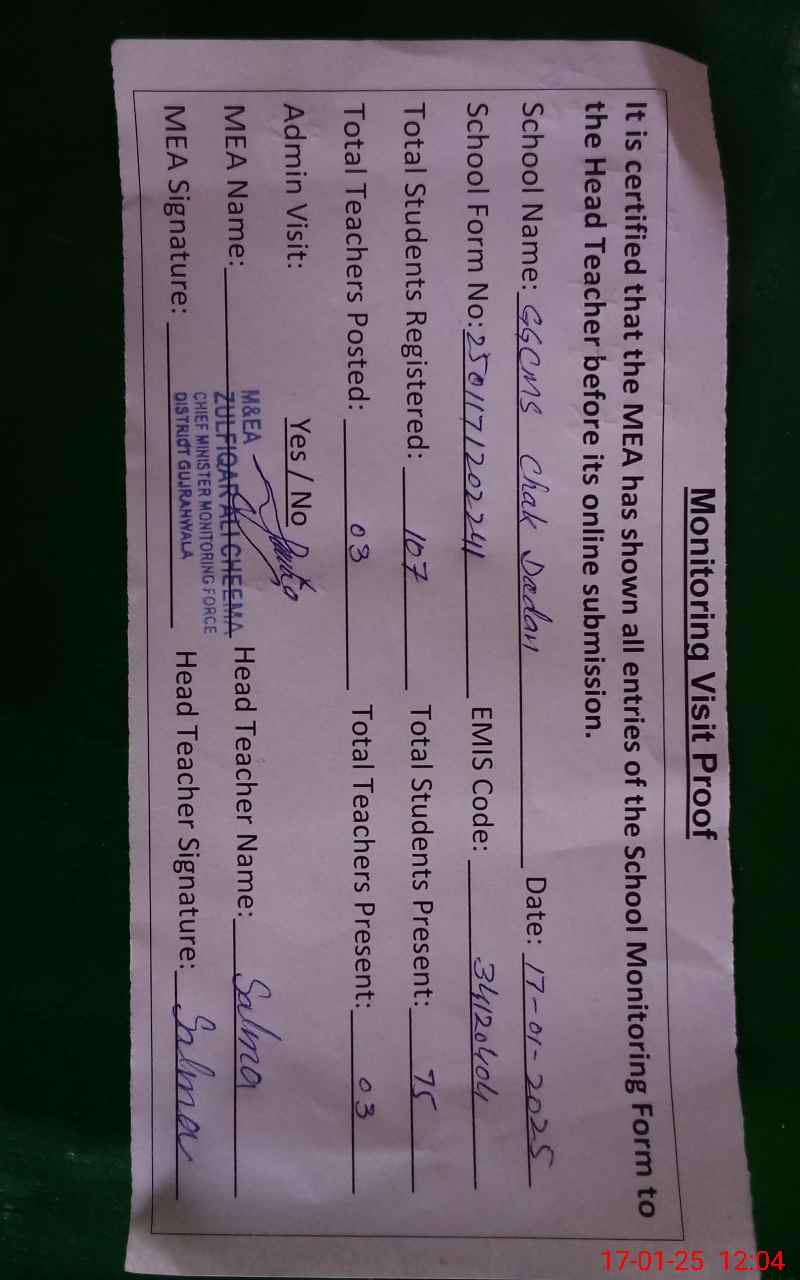 Monitoring Visit Proof
It is certified that the MEA has shown all entries of the School Monitoring Form to
the Head Teacher before its online submission.
School Name: GGCMS Chak Dadan Date: 17-01-2025
School Form No: 2501171202241 EMIS Code: 34120404
Total Students Registered: 107 Total Students Present: 75
Total Teachers Posted: 03 Total Teachers Present: 03
Admin Visit: Yes / No
MEA Name: Head Teacher Name: Salma
MEA Signature: Head Teacher Signature: Salma
M&EA
ZULFIQAR ALI CHEEMA
CHIEF MINISTER MONITORING FORCE
DISTRICT GUJRANWALA
17-01-25 12:04